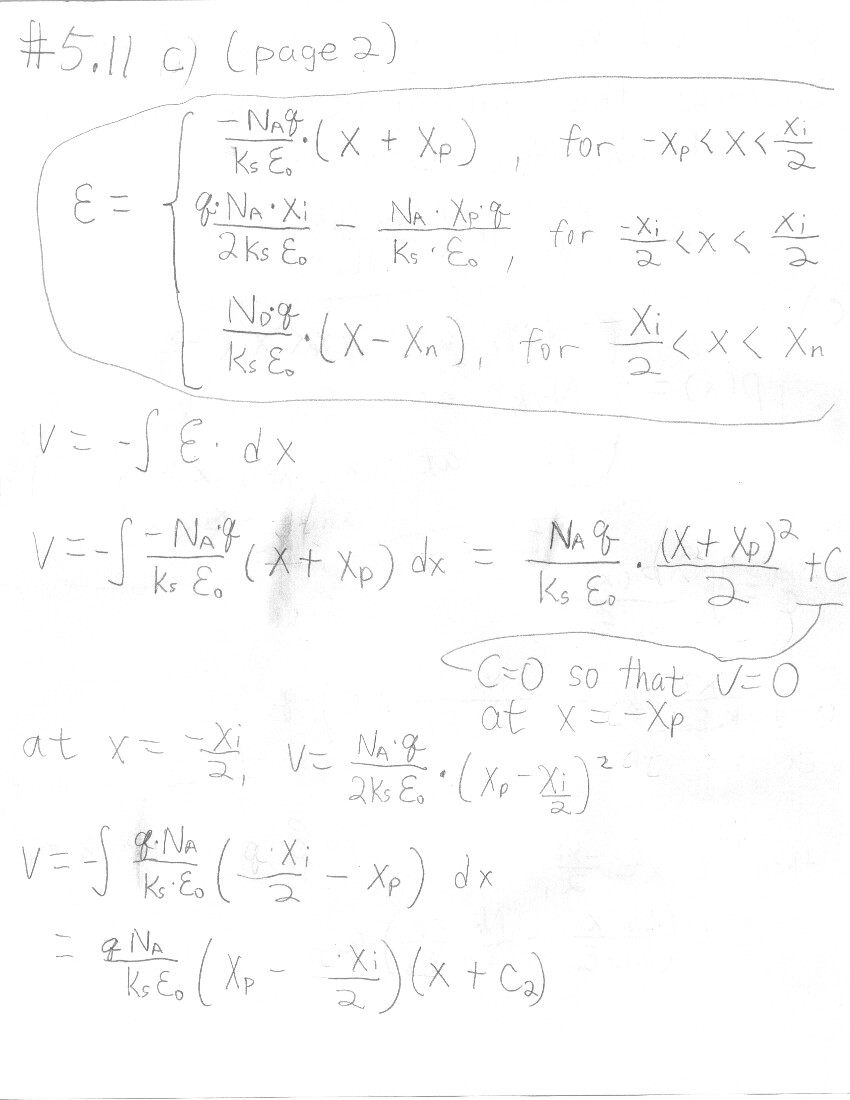 #5.11 c) (page 2)
ε = { -NAq / (Ks ε₀) · (X + Xp) , for -Xp < X < Xi/2
q·NA·Xi / (2Ks ε₀) - NA·Xp·q / (Ks·ε₀) , for -Xi/2 < X < Xi/2
ND·q / (Ks ε₀) · (X - Xn) , for Xi/2 < X < Xn
V = -∫ ε · dx
V = -∫ -NA·q / (Ks ε₀) (X + Xp) dx = NA q / (Ks ε₀) · (X + Xp)² / 2 + C
C=0 so that V=0
at X = -Xp
at X = -Xi/2, V = NA·q / (2Ks ε₀) · (Xp - Xi/2)²
V = -∫ q·NA / (Ks·ε₀) (Xi/2 - Xp) dx
= q NA / (Ks ε₀) (Xp - ·Xi/2)(X + C₂)